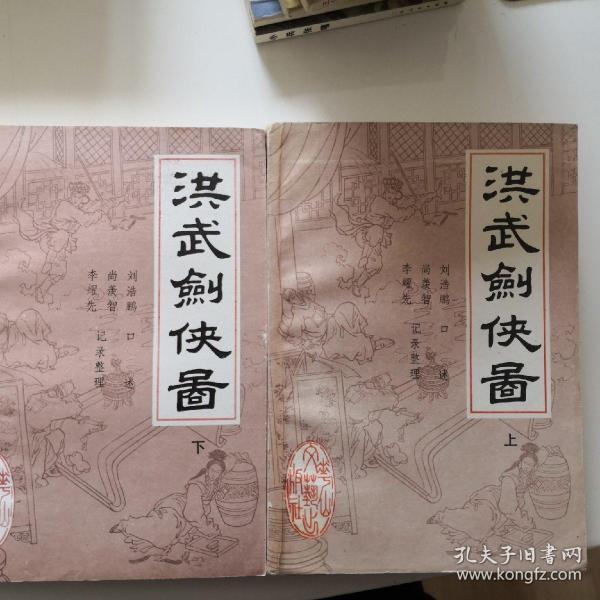 洪武劍侠图
刘浩鹏 口 述
尚羡智
李燿先 记录整理
下
洪武劍侠图
刘浩鹏 口 述
尚羡智
李燿先 记录整理
上
花山文艺出版社
孔夫子旧书网
www.kongfz.com